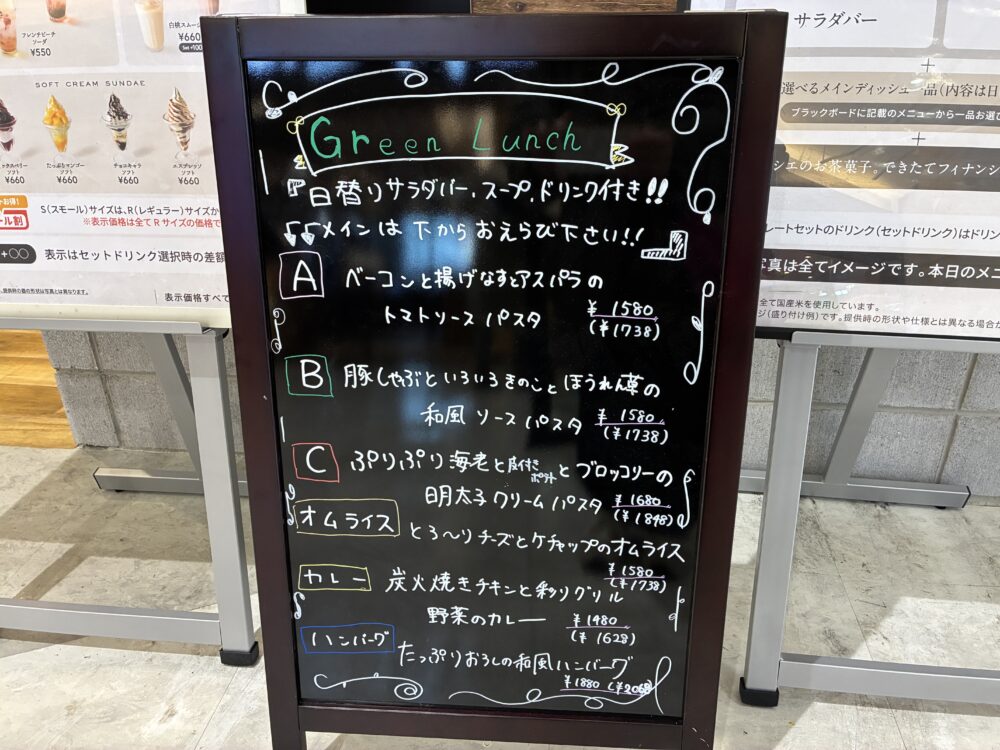 フレンチピーチ
ソーダ
¥550
白桃スムー
¥660
SOFT CREAM SUNDAE
ソフト
¥660
たっぷりマンゴー
ソフト
¥660
チョコキャラ
ソフト
¥660
エスプレッソ
ソフト
¥660
S(スモール)サイズは、R(レギュラー)サイズか
※表示価格は全てRサイズの価格で
+〇〇 表示はセットドリンク選択時の差額
表示価格すべて
Green Lunch
日替りサラダバー、スープ、ドリンク付き!!
メインは下からおえらび下さい!!
A ベーコンと揚げなすとアスパラの
トマトソースパスタ ¥1580
(¥1738)
B 豚しゃぶといろいろきのことほうれん草の
和風ソースパスタ ¥1580
(¥1738)
C ぷりぷり海老と皮付きポテトとブロッコリーの
明太子クリームパスタ ¥1680
(¥1848)
オムライス とろ〜りチーズとケチャップのオムライス
¥1580
(¥1738)
カレー 炭火焼きチキンと彩りグリル
野菜のカレー ¥1480
(¥1628)
ハンバーグ たっぷりおろしの和風ハンバーグ
¥1880 (¥2068)
サラダバー
+
選べるメインディッシュ一品(内容は日
ブラックボードに記載のメニューから一品お選び
+
シエのお茶菓子。できたてフィナンシ
レートセットのドリンク(セットドリンク)はドリン
写真は全てイメージです。本日のメニ
全て国産米を使用しています。
ジ(盛り付け例)です。提供時の形状や仕様とは異なる場合が